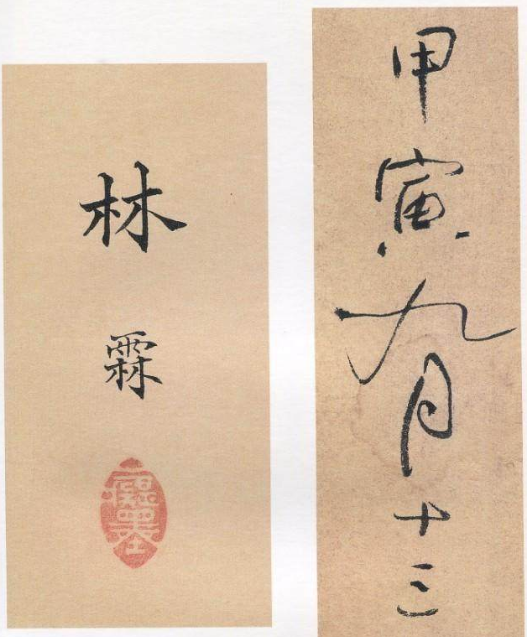 甲寅九月十三
林霖